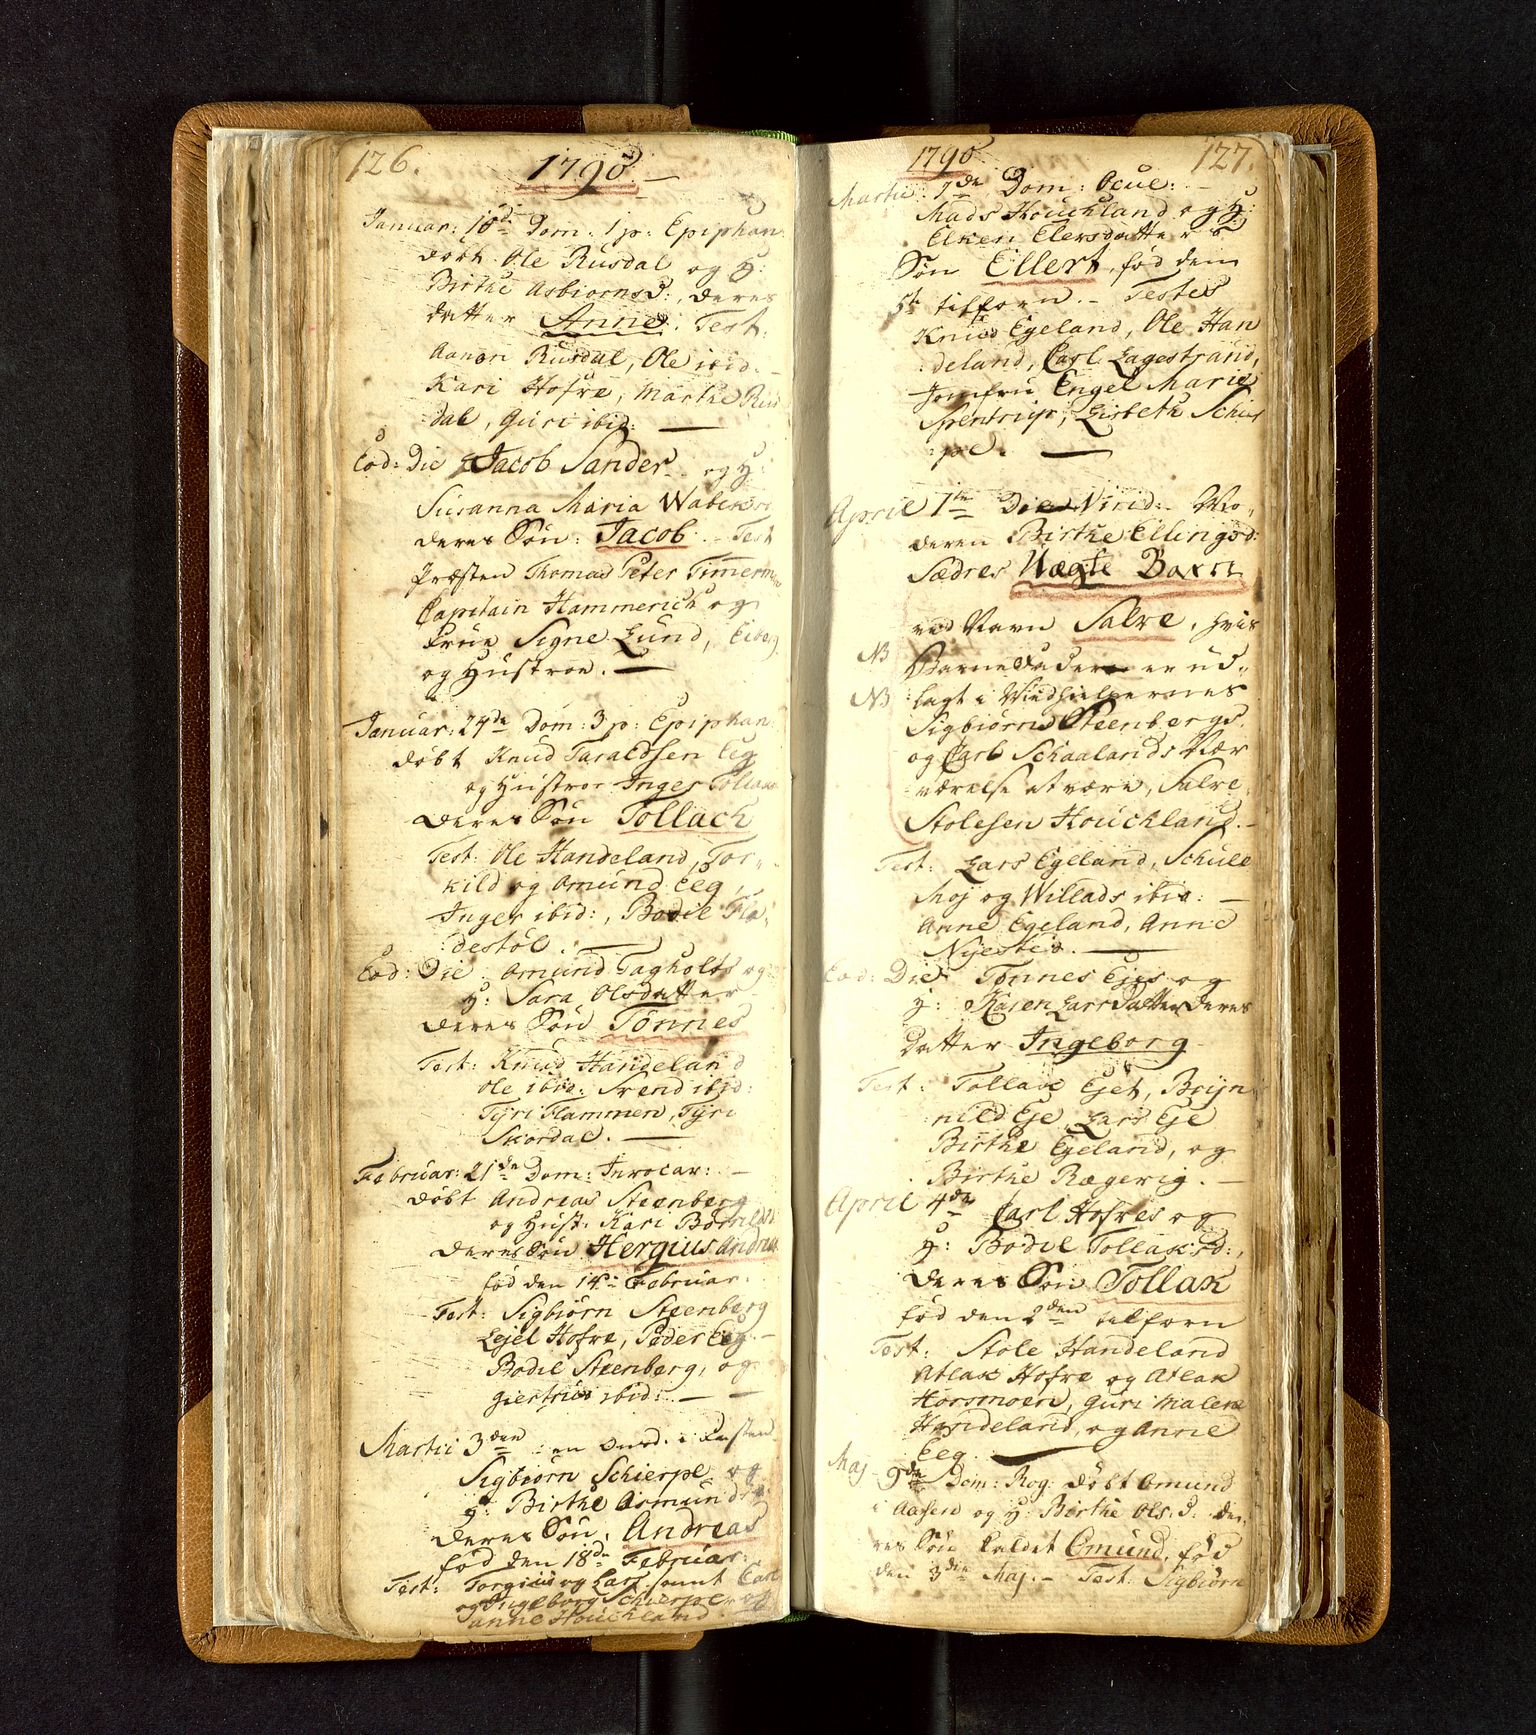 126.
1790. —
Januar: 10de Dom. 1 p: Epiphan
döbt Ole Rusdal og H:
Birthe Asbiornsd:, deres
datter Anne. Test.
Aanon Rusdal, Ole ibid. -
Kari Hofre, Marthe Rus
dal, Guri ibid: —
Eod: Die Jacob Sander og H:
Susanna Maria
deres Sön: Jacob. - Test
Præsten Thomas Peter Timerman
Capitain Hammerich og
Frue Signe Lund,
og Hustroe. —
Januar: 24de Dom: 3 p: Epiphan
döbt Knud Taraldsen Eeg
og Hustroe Inger
deres Sön Tollach
Test: Ole Handeland, Tor-
kild og Omund Eeg,
Inger ibid:, Bodil Fla-
destöl. —
Eod: Die. Omund Tagholts og
H: Sara Olsdatter
deres Sön Tönnes
Test: Knud Handeland
Ole ibid: Svend ibid:
Tyri Flammen, Tyri
Skordal. —
Februar: 21de Dom: Invocav: —
döbt Andreas Steenberg
og Hust: Kari
deres Sön Hergius Andreas
föd den 14: Februar.
Test: Sigbiörn Steenberg
Ejel Hofre, Peder Eeg. —
Bodil Steenberg, og
giertrud ibid: — —
Martii 3den : en Onsd: i Fasten
Sigbiörn Schierpe og
H: Birthe Asmunds
deres Sön, Andreas
föd den 18de Februar.
Test: Torgius og Lars samt Carl
og Ingeborg Schierpe og
anne Houchland.
1790. 127.
Martii. 7de Dom: Ocul: —
Mads Houchland og H:
Elken Elersdatters
Sön Ellert, föd dem
5te tilforn. - Testes
Knud Egeland, Ole Han
deland, Carl Lagestrand,
Jomfru Engel Marie
Sventrup, Lisbeth Schier
pe. —
April 1te Die Virid: Mo-
deren Birthe Ellingsd:
Sædres Uægte Barn
ved Navn Salve, hvis
NB Barnefader er ud-
NB lagt i Medhielpernes
Sigbiörns Steenbergs
og Carl Schaalands Nær
værelse at være, Salve
Stolesen Houchland. -
Test: Lars Egeland, Schule
Moj og Willads ibid: —
Anne Egeland, Anne
Nyested. —
Eod: Die Tönnes Ejes og
H: Karen Larsdatter deres
Datter Ingeborg
Test: Tollak Ejet, Bryn
nild Eje Lars Eje
Birthe Egeland, og
Birthe Rægevig. —
April 4de Carl Hofres og
H: Bodil Tollaksd:,
deres Sön Tollak
föd den 2den tilforn
Test: Stole Handeland
Atlak Hofre og Atlak
Horsmoen, Guri Malene
Handeland, og Anne
Eeg. —
Maj 9de Dom: Rog: döbt Omund
i Aasen og H: Birthe Ols. D. de-
res Sön kaldet Omund, föd
den 3die Maj. - Test: Sigbiörn